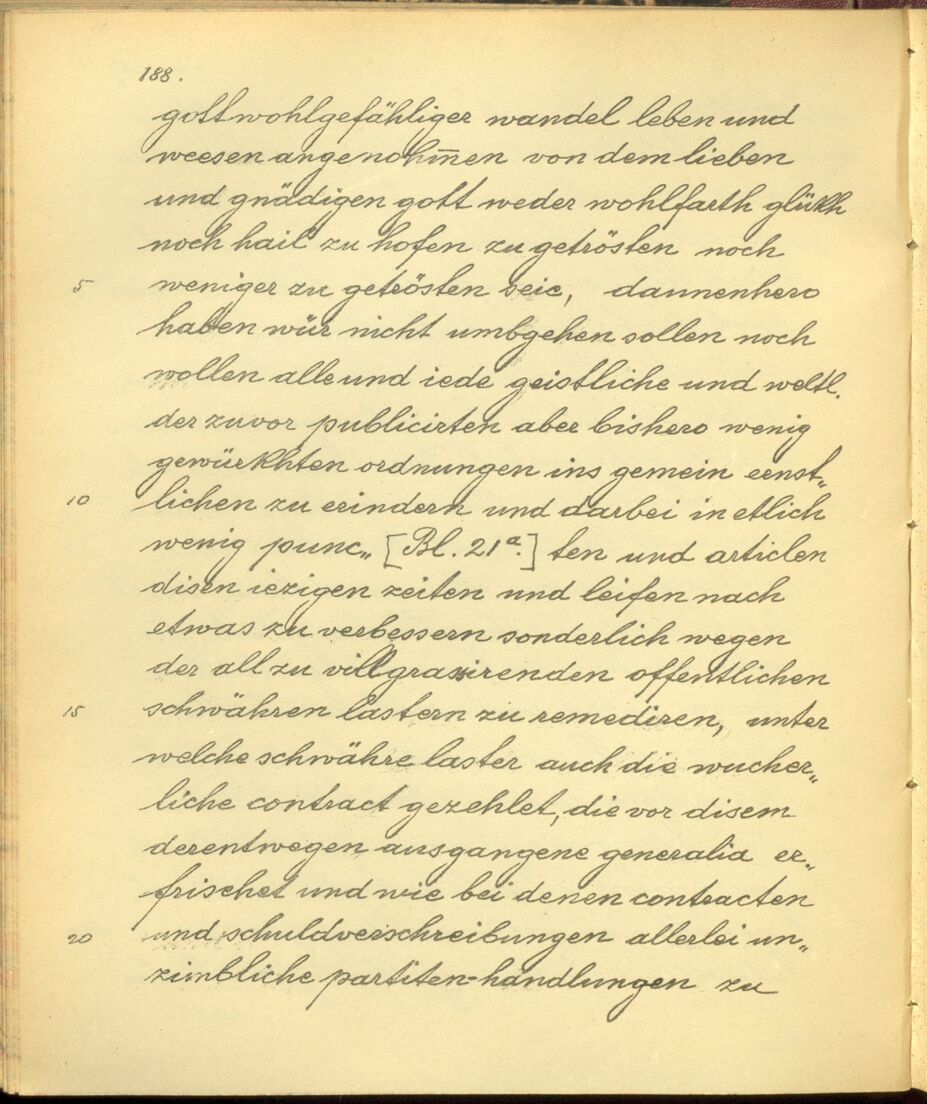 188.
gottwohlgefähliger wandel leben und
weesen angenohm̄en von dem lieben
und gnädigen gott weder wohlfarth glükh
noch hail zu hofen zu getrösten noch
5 weniger zu getrösten seie, dannenhero
haben wür nicht umbgehen sollen noch
wollen alle und iede geistliche und weltl.
der zuvor publicirten aber bishero wenig
gewürkhten ordnungen ins gemein ernst„
10 lichen zu erindern und darbei in etlich
wenig punc„ [Bl. 21a.] ten und articlen
disen iezigen zeiten und leifen nach
etwas zu verbessern sonderlich wegen
der all zu vill grassirenden offentlichen
15 schwähren lastern zu remediren, unter
welche schwähre laster auch die wucher„
liche contract gezehlet, die vor disem
derentwegen ausgangene generalia er„
frischet und wie bei denen contracten
20 und schuldverschreibungen allerlei un„
zimbliche partiten-handlungen zu